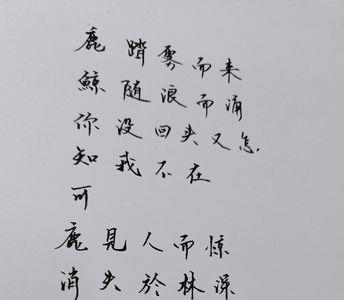 鹿踏雾而来
鲸随浪而涌
你没回头又怎
知我不在
可
鹿見人而惊
消失於林深